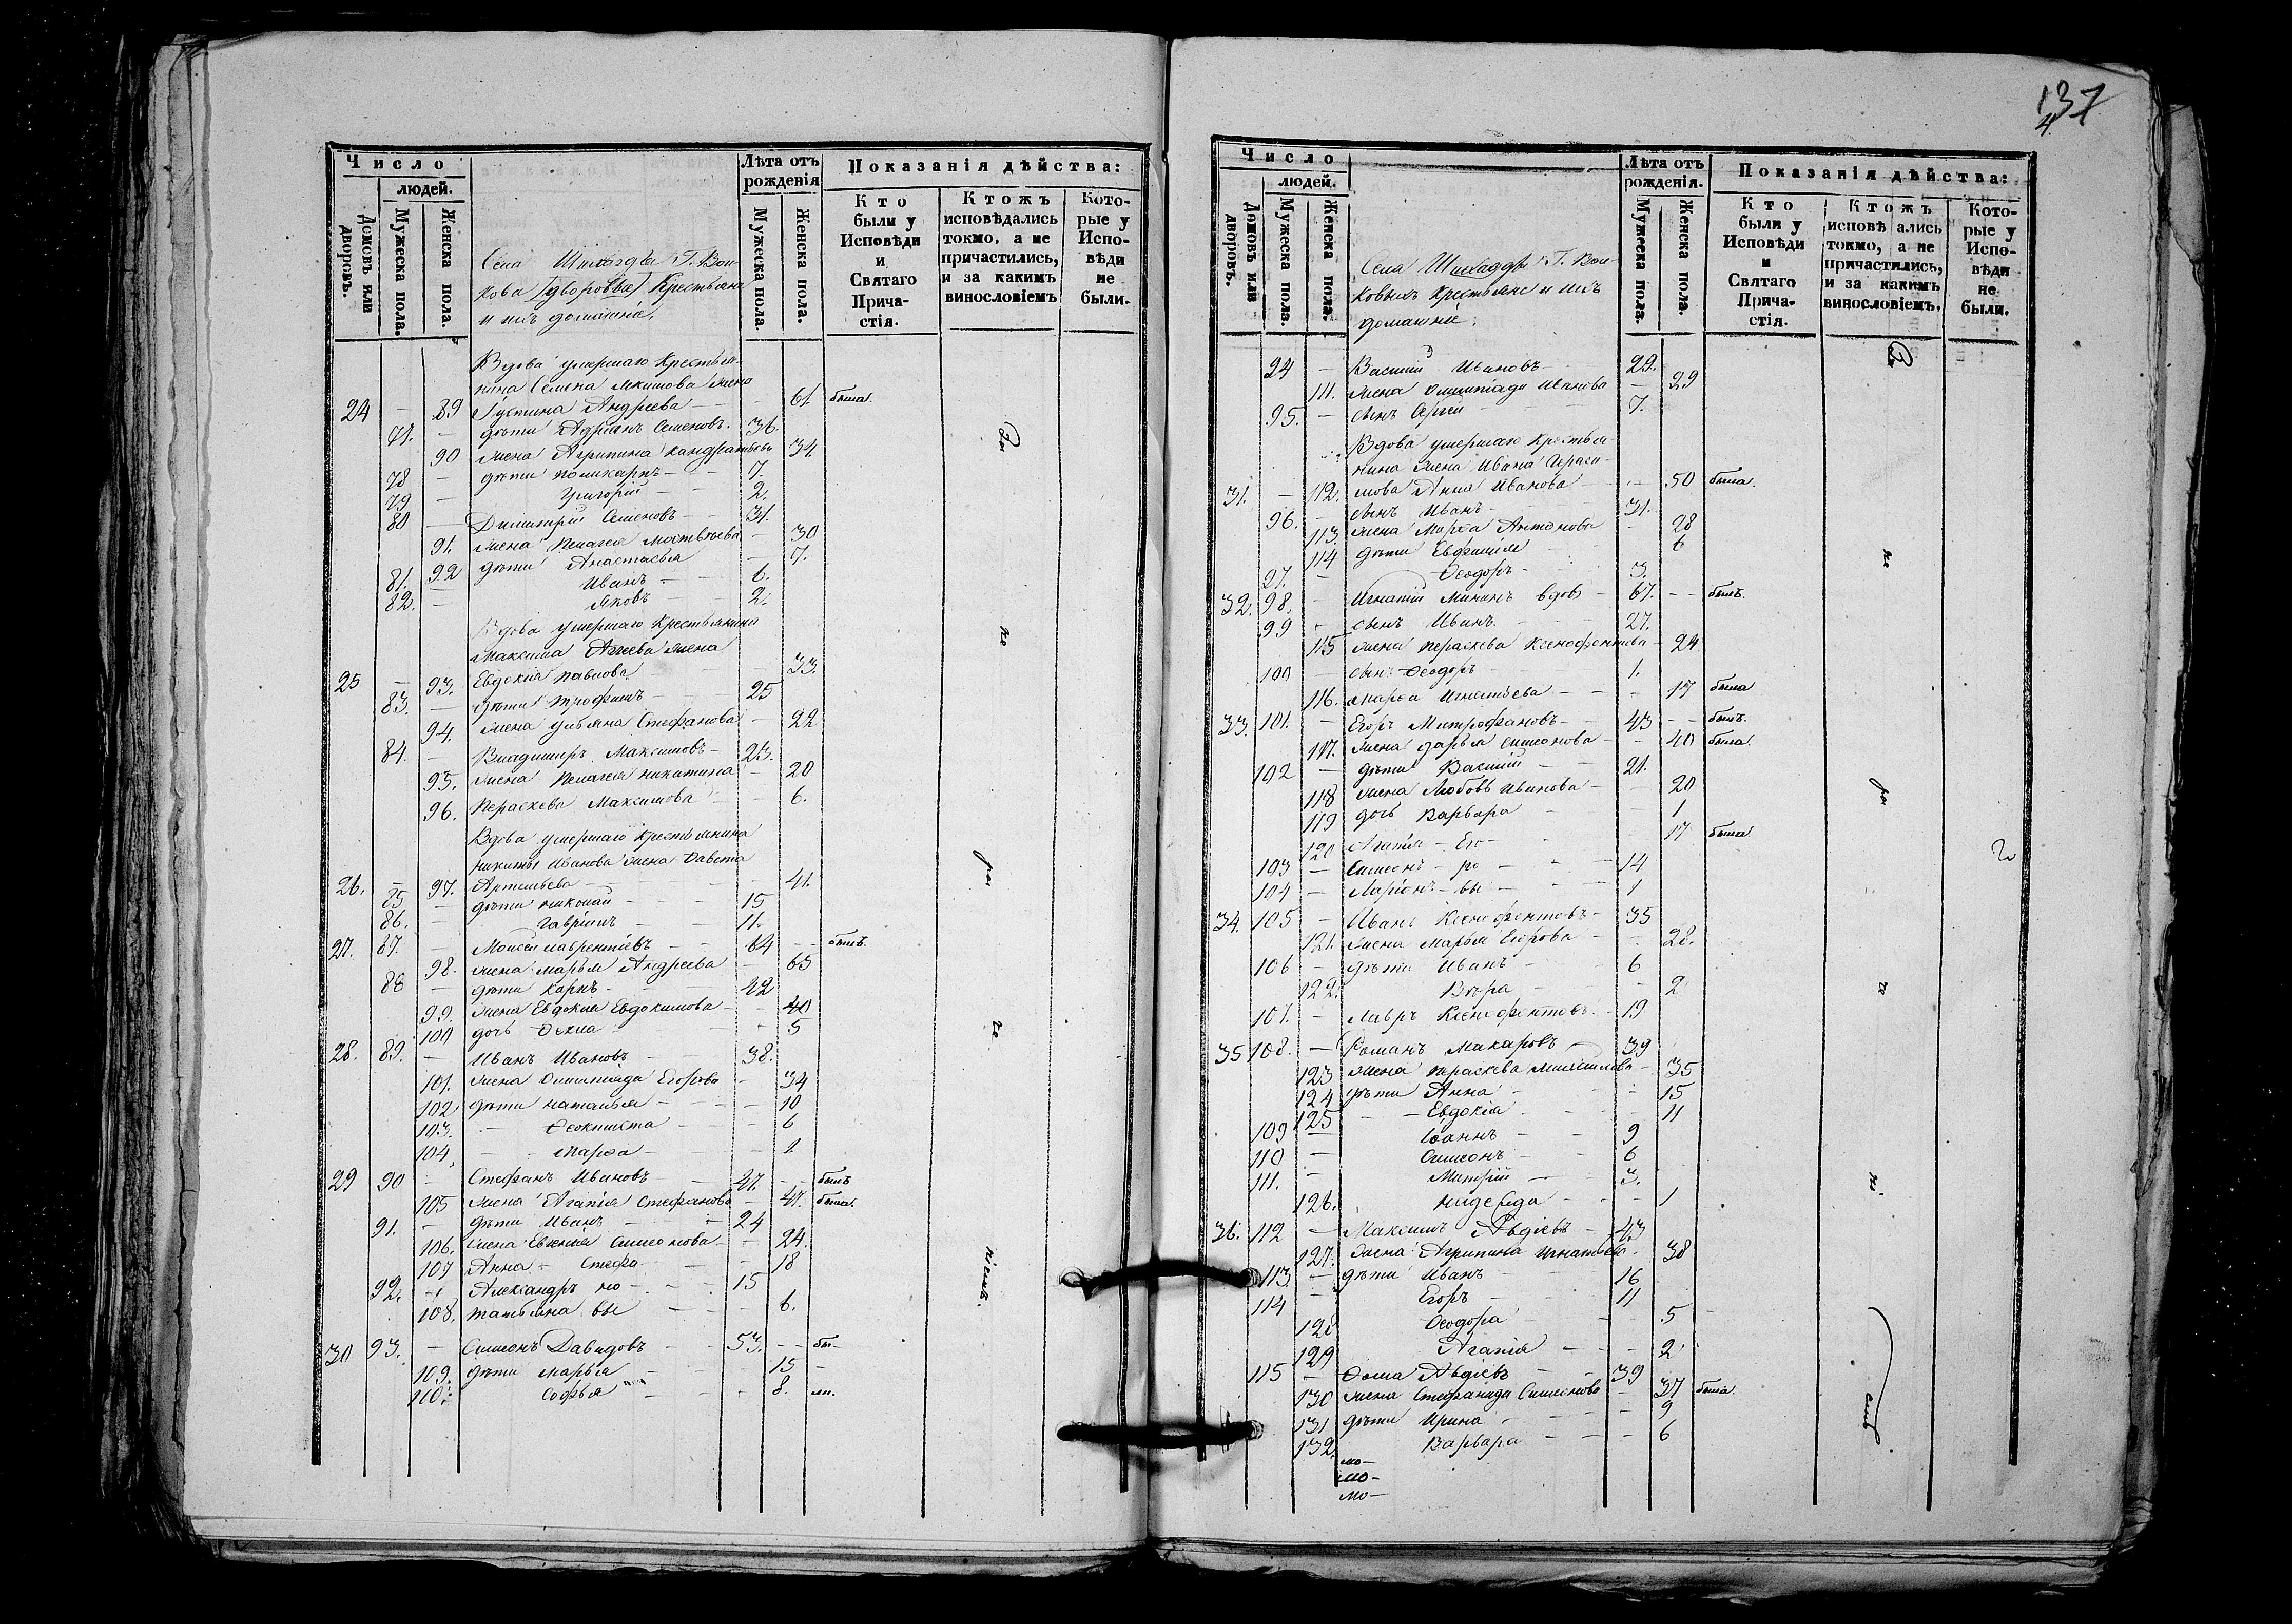 137
4
Число
людей.
Домовъ или дворовъ.
Мужеска пола.
Женска пола.
Лѣта отъ рожденія
Мужеска пола.
Женска пола.
Показанія дѣйства:
Кто были у Исповѣди и Святаго Причастія.
Ктожъ исповѣдались токмо, а не причастились, и за какимъ винословіемъ
Которые у Исповѣди не были.
Села Г. Вол-
кова (дворовые) Крестьяне
и ихъ домашніе,
Вдова умершаго Крестья-
нина Семена Акимова жена
24 — 89 Густина Андреева — 61. была.
77. — дѣти Адріанъ Семеновъ. 36.
90 жена Агрипина Кандратьева 34.
78 — дѣти Поликарпъ — 7.
79 — Григорій — 2.
80 — Димитрій Семеновъ — 31.
91. жена Пелагея Матвѣева — 30
92 дѣти Анастасья — 7.
81. — Иванъ — 6.
82. — Яковъ — 2.
Вдова умершаго Крестьянина
Максима Агеева жена
25 — 93. Евдокія Павлова — 33.
83. — дѣти Трофимъ — 25
94. жена Ульяна Стефанова — 22
84. — Владимиръ Максимовъ — 23.
95. жена Пелагея Никитина — 20
96. Параскева Максимова — 6.
Вдова умершаго Крестьянина
Никиты Иванова жена Фавста
26. — 97. Артемьева — 41.
85 — дѣти Николай — 15
86. — Гавріилъ — 11.
27. 87. — Моисей Лаврентіевъ — 64 — былъ.
98. жена Марья Андреева — 63
88 — дѣти Карпъ — 42
99. жена Евдокія Евдокимова — 40
100 дочь Фекла — 5
28. 89. — Иванъ Ивановъ — 38.
101. жена Олимпіада Егорова — 34
102 дѣти Наталья — 10
103. — Феоктиста — 6
104, — Марѳа — 2
29 90 — Стефанъ Ивановъ — 47. — былъ
105 жена Агапія Стефанова — 47. была.
91. — дѣти Иванъ — 24
106. жена Евгенія Симеонова — 24.
107 Анна — Стефа- — 18
92. — Александръ но- — 15
108. Татьяна вы — 6.
30 93. — Симеонъ Давидовъ — 53. — бы-
109. дѣти Марья — 15 —
110. Софья — 8. ли.
За
по
ра
че
ніемъ.
Число
людей.
Домовъ или дворовъ.
Мужеска пола.
Женска пола.
Лѣта отъ рожденія.
Мужеска пола.
Женска пола.
Показанія дѣйства:
Кто были у Исповѣди и Святаго Причастія.
Ктожъ исповѣ ались токмо, а не причастились, и за какимъ винословіемъ.
Которые у Исповѣди не были.
Села Г. Вол-
ковыхъ Крестьяне и ихъ
домашніе.
94 — Василій Ивановъ — 29.
111. жена Олимпіада Иванова — 29
95. — сынъ Сергей — 7.
Вдова умершаго Крестья-
нина жена Ивана Гераси-
31. — 112. мова Анна Иванова — 50 была.
96. — сынъ Иванъ — 31.
113. жена Марѳа Антонова — 28
114 дѣти Евфимія — 6
97. — Ѳеодоръ — 3.
32. 98. — Игнатій Мининъ вдовъ — 67. — былъ.
99 — сынъ Иванъ — 27.
115 жена Параскева Ксенофонтова — 24
100 — сынъ Ѳеодоръ — 1.
116. Марѳа Игнатьева — 17 была
33. 101. — Егоръ Митрофановъ — 43 — былъ.
117. жена Дарья Симеонова — 40 была.
102 — дѣти Василій — 21.
118 жена Любовь Иванова — 20
119 дочь Варвара — 1
120 Агапія — Его- — 17 была
103 — Симеонъ — ро — 14
104 — Ларіонъ — вы — 1
34. 105 — Иванъ Ксенофонтовъ — 35
121. жена Марья Егорова — 28.
106 — дѣти Иванъ — 6
122. Вѣра — 2
107. — Лавръ Ксенофонтовъ — 19
35 108. — Романъ Макаровъ — 39
123 жена Параскева — 35
124 дѣти Анна — 15
125 — Евдокія — 11
109 — Іоаннъ — 9
110 — Симеонъ — 6
111. — Митрій — 3.
126. Надежда — 1
36. 112 — Максимъ Авдіевъ — 43
127. жена Агрипина Игнатьева — 38
113. — дѣти Иванъ — 16
114 — Егоръ — 11
128 Ѳеодора — 5
129 Агапія — 2
115 — Ѳома Авдіевъ — 39
130 жена Стефанида Симеонова — 37 была.
131 дѣти Ирина — 9
132. Варвара — 6
мо-
мо-
мо-
За
не
ра
че
ні
емъ